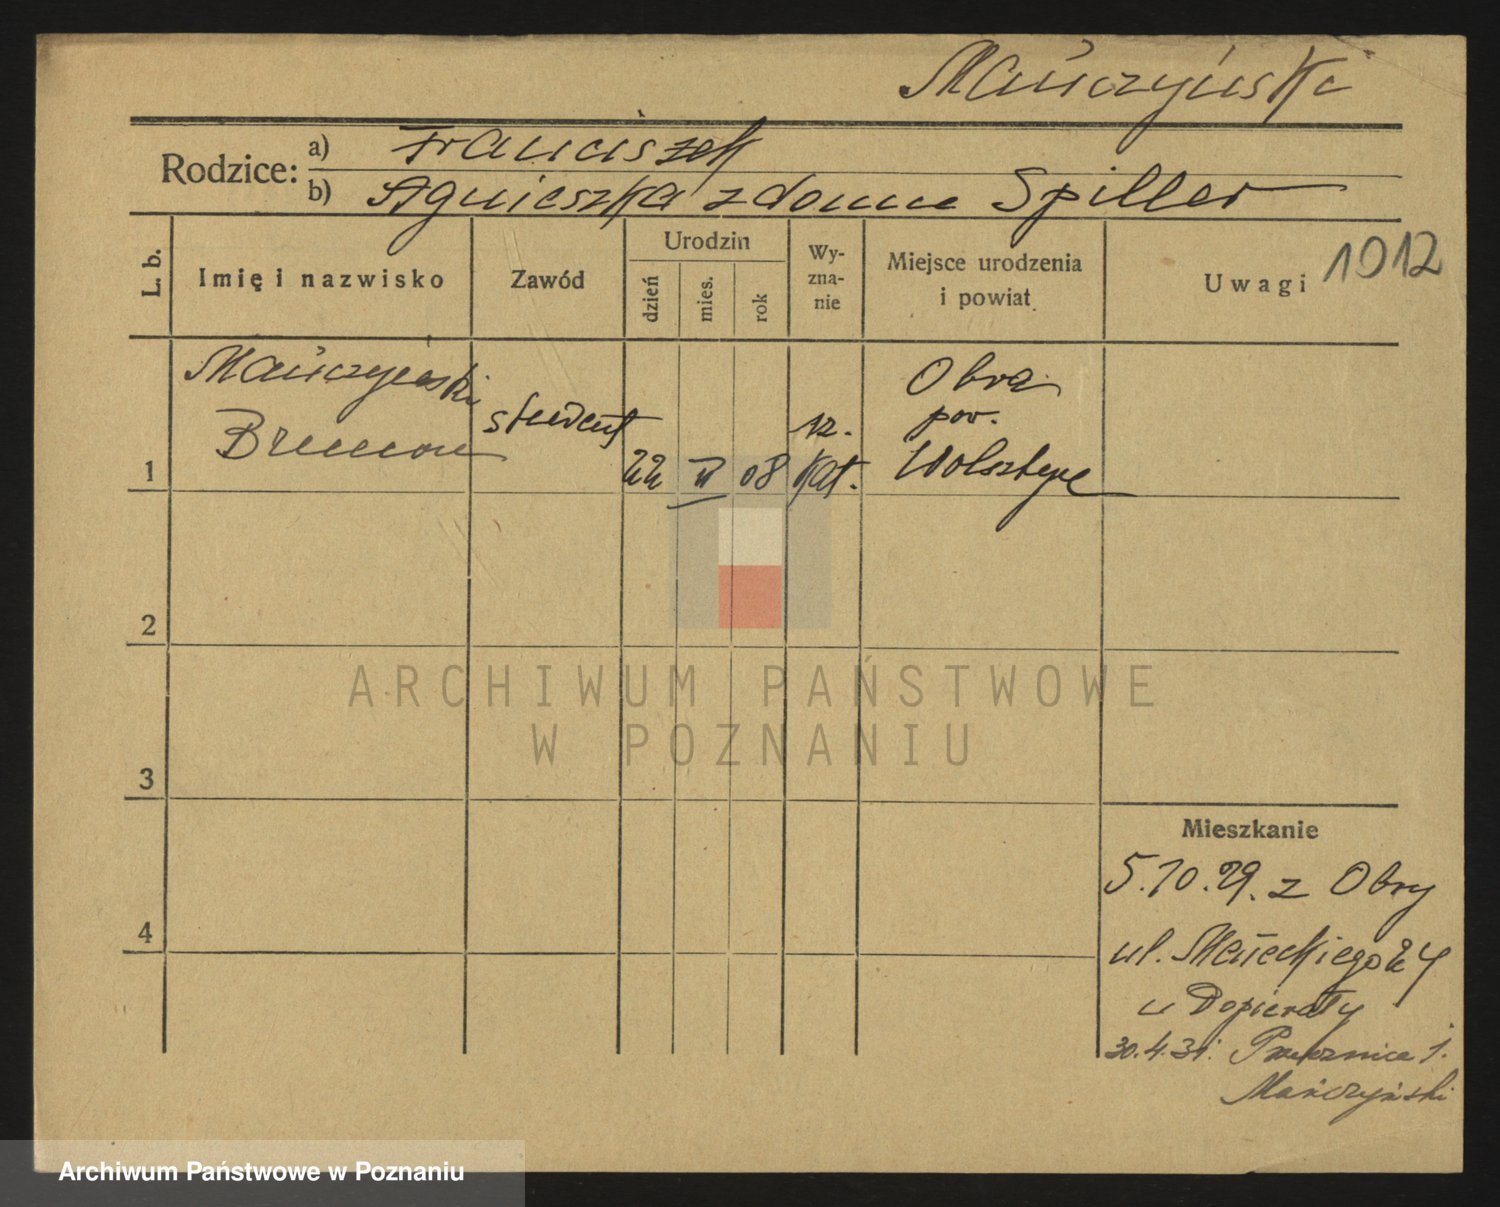 Mańczyński
Rodzice: a) Franciszek
b) Agnieszka z domu Spiller
L. b.
Imię i nazwisko
Zawód
Urodzin
dzień
mies.
rok
Wy-
zna-
nie
Miejsce urodzenia
i powiat
Uwagi 1012
Mańczyński
Brunon
student
22 II 08
rz.
kat.
Obra
pow.
Wolsztyn
1
2
3
4
ARCHIWUM PAŃSTWOWE
W POZNANIU
Mieszkanie
5.10.29. z Obry
ul. Małeckiego 24
u Dopierały
30.4.31. 1.
Mańczyński
Archiwum Państwowe w Poznaniu